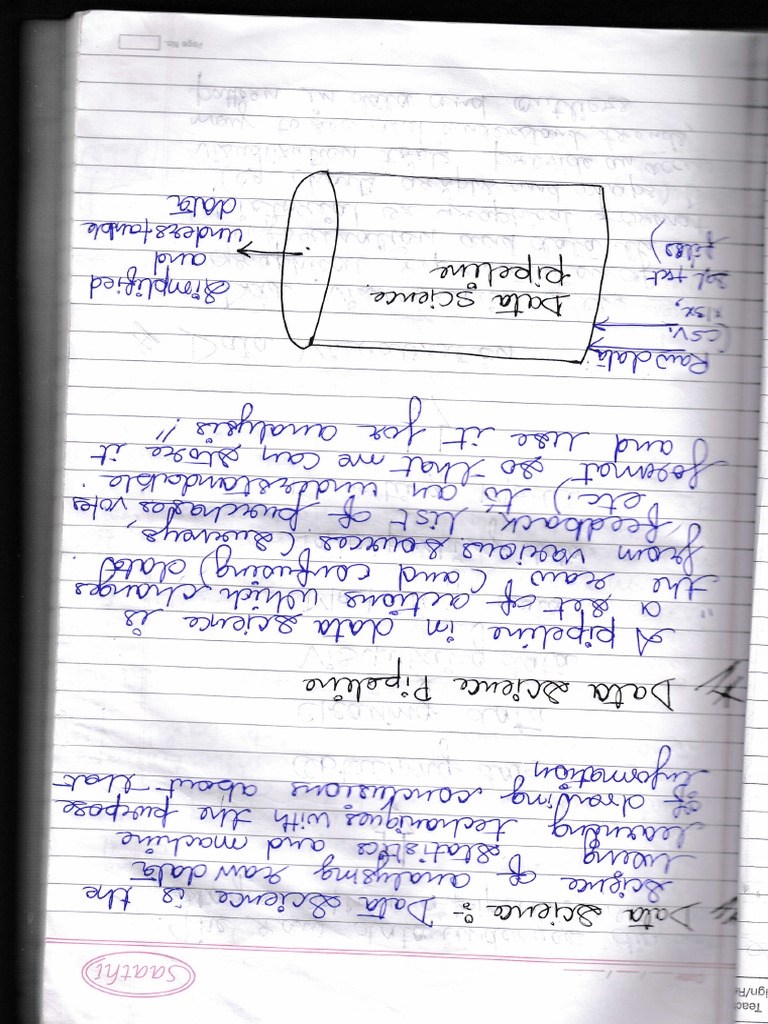 saathi
Date
Data Science :- Data Science is the
science of analysing raw data
using statistics and machine
learning techniques with the purpose
of drawing conclusions about that
information
Data Science Pipeline
A pipeline in data science is
"a set of actions which changes
the raw (and confusing) data
from various sources (surveys,
feedback, list of purchases, votes
etc.), to an understandable
format so that we can store it
and use it for analysis."
Raw data
(CSV,
xlsx,
sql, txt
files)
Data Science
pipeline
Simplified
and
understable
data
Page No.